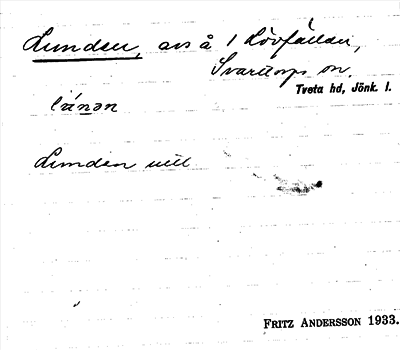 Lunden, avs å 1 Lövfällan,
Svarttorps sn.
Tveta hd, Jönk. l.
lánən
Lunden
FRITZ ANDERSSON 1933.